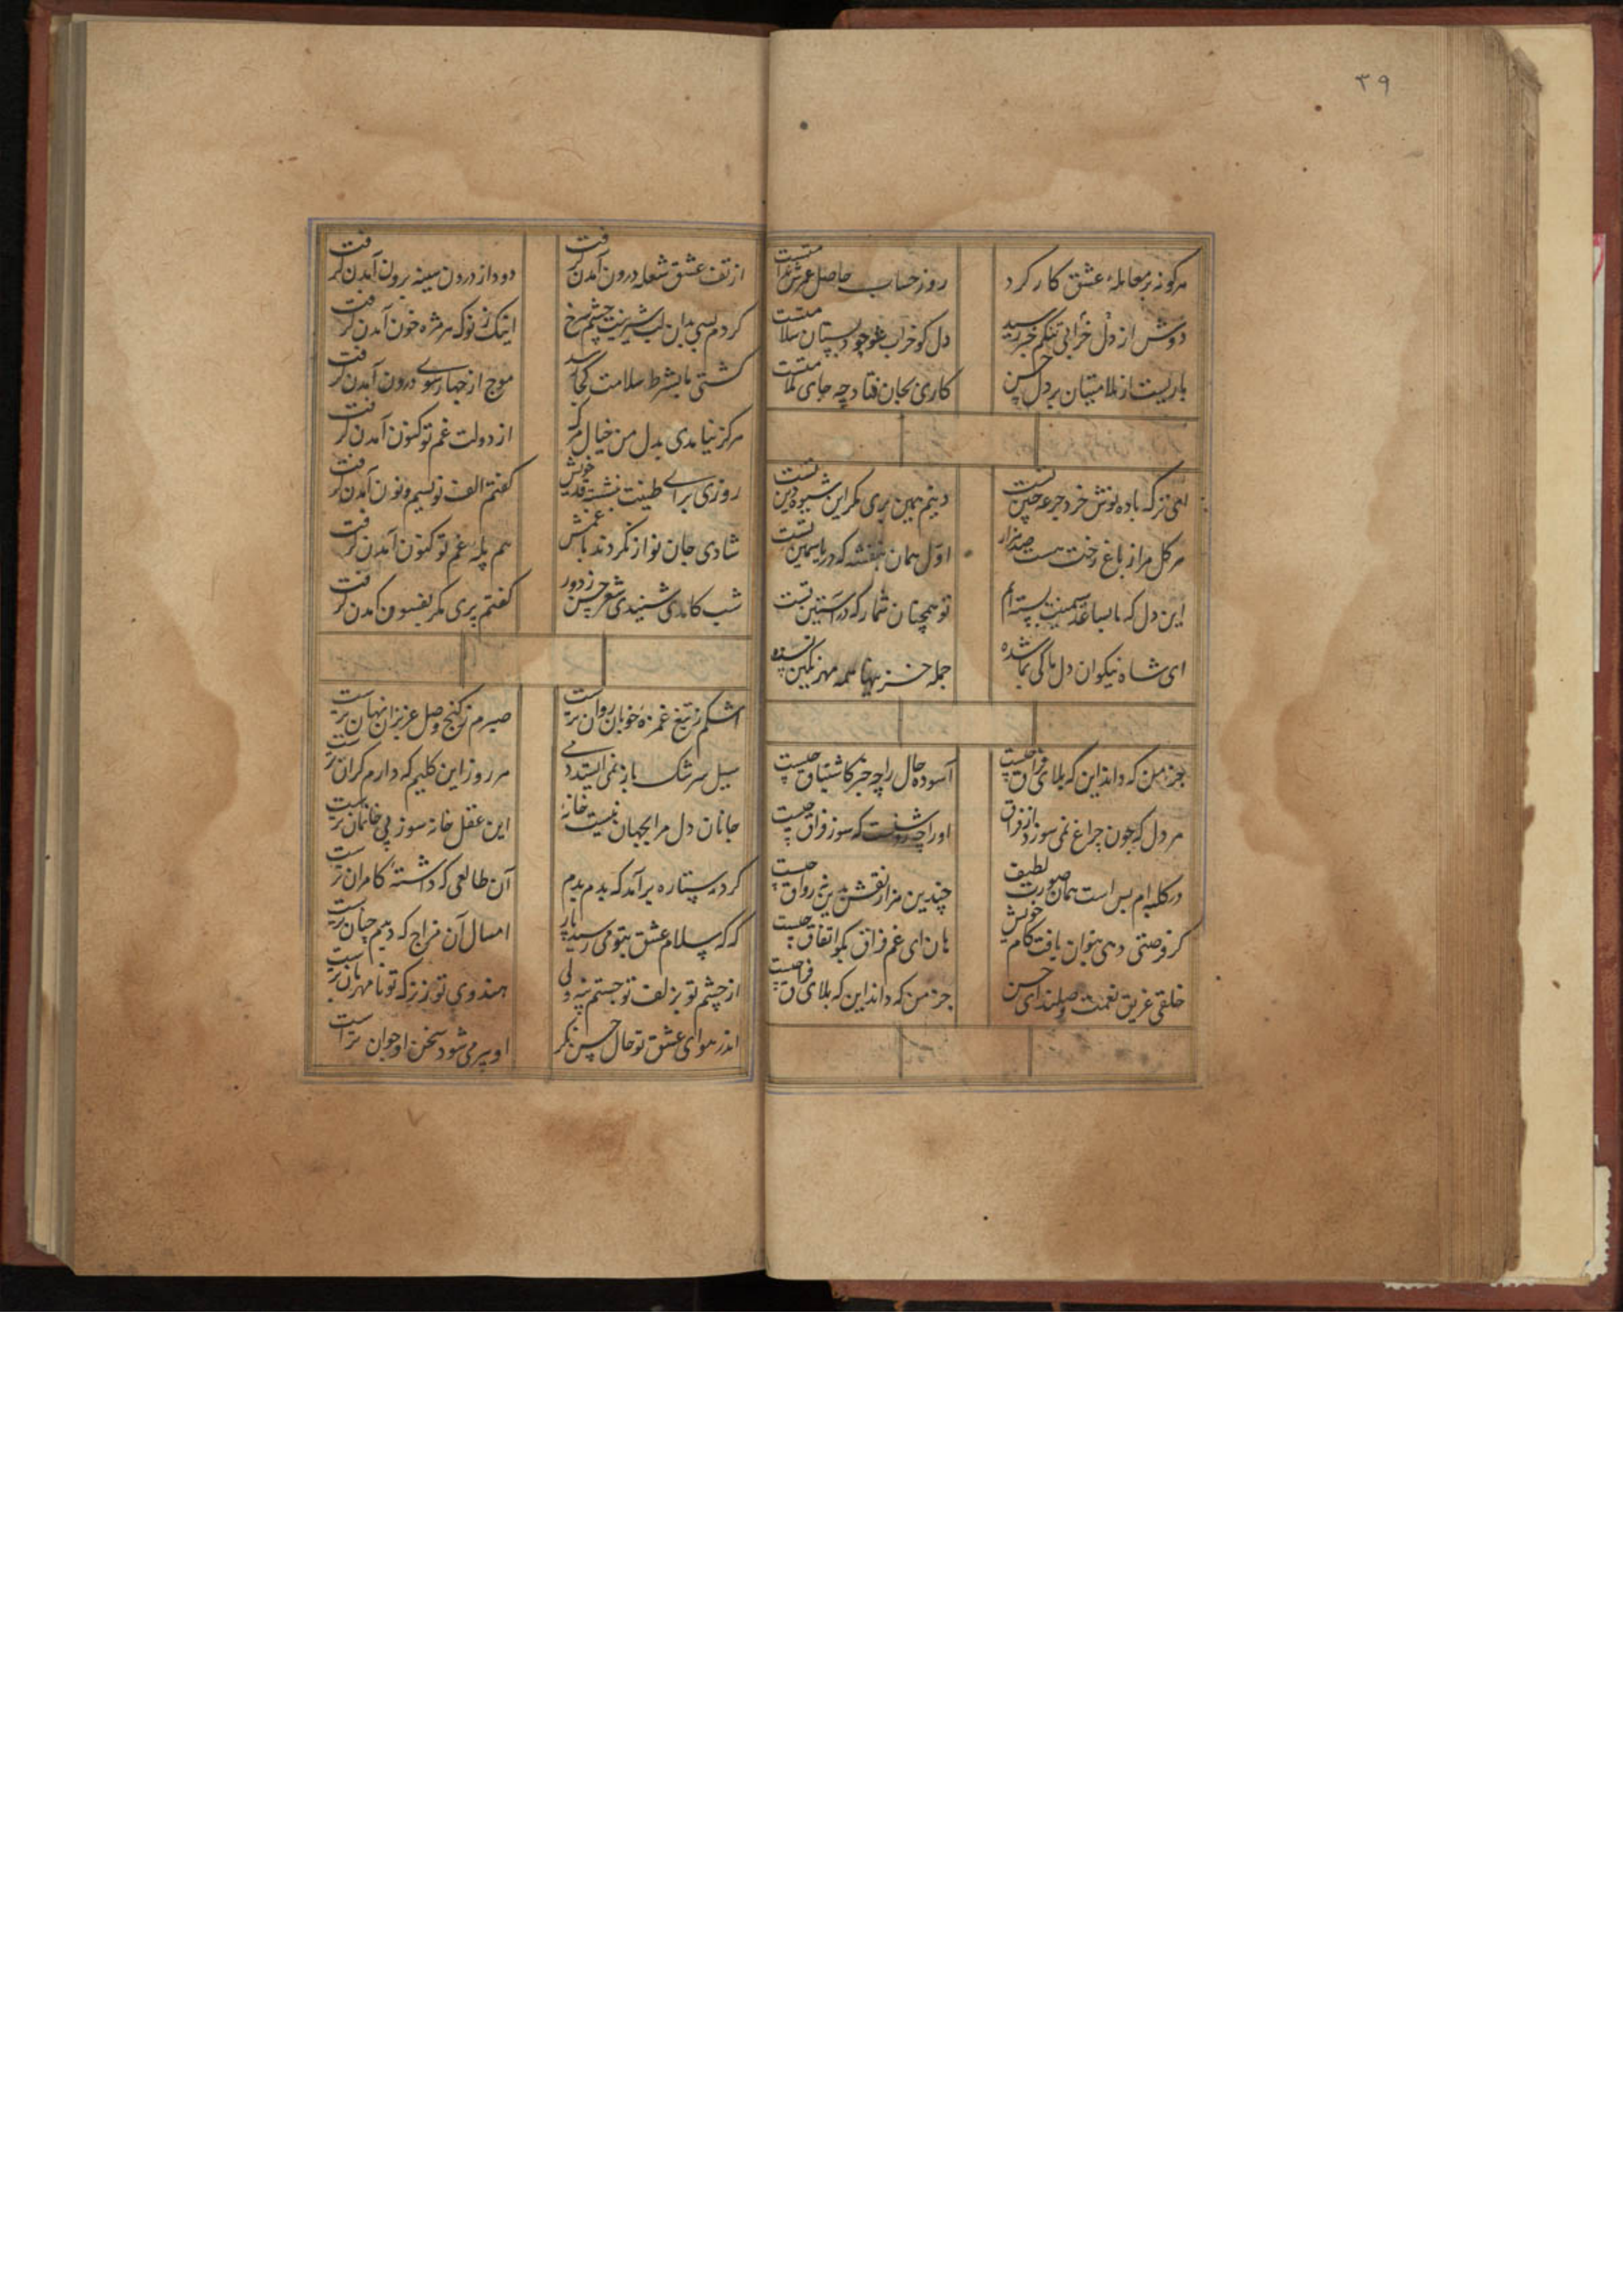 ۳۹
هر کو نه بر معاملهٔ عشق کار کرد
روز حساب حاصل عمرش غرامتست
دوش از دل خرابی تنکم خبر رسید
دل کو خراب شو چو دبستان سلامتست
باریست از ملامتیان بر دل حسن
کاری بجان فتاد چه جای ملامتست
ای ترک باده نوش خرد جرعه چین تست
دینم همین بری مکر این شیوه دین تست
هر کل مرا ز باغ رخت هست صد هزار
اول همان بنفشه که در یاسمین تست
این دل که با ساعد سیمینت بسته‌ام
تو همچنان شمار که در آستین تست
ای شاه نیکوان دل ما کی بما شده
جمله خزینها همه مهر نکین تست
جز من که داند این که بلای فراق چیست
آسوده حال را چه خبر کاشتیاق چیست
هر دل که چون چراغ نمی سوزد از فراق
او را چه روشنست که سوز فراق چیست
در کلبه‌ام بس است همان صورت لطیف
چندین هزار نقش برین نه رواق چیست
کر فرصتی دهی بتوان یافت کام خویش
هان ای غم فراق بکو اتفاق چیست
خلقی غریق نعمت وصلند ای حسن
جز من که داند این که بلای فراق چیست
از تف عشق شعله درون آمدن کرفت
دود از درون سینه برون آمدن کرفت
کردم بسی بدان لب شیرینت چشم سرخ
اینک ز نوک هر مژه خون آمدن کرفت
کشتی ما بشرط سلامت کجا رسد
موج از چهار سوی درون آمدن کرفت
هرکز نیامدی بدل من خیال مرک
از دولت غم تو کنون آمدن کرفت
روزی برای طینت نبشته قد خویش
کفتم الف نویسم و نون آمدن کرفت
شادی جان نواز نکردند با غمش
هم پله غم تو کنون آمدن کرفت
شب کامدی شنیدی شعر حسن ز دور
کفتم پری مکر بفسون آمدن کرفت
اشکم ز تیغ غمزهٔ خوبان روان ترست
صبرم ز کنج وصل عزیزان نهان ترست
سیل سرشک باز نمی ایستد دمی
هر روز این کلیم که دارم کران ترست
جانان دل مرا بجهان نیست خانهٔ
این عقل خانه سوز پی خانمان ترست
کرد ستاره برآمد که بدم بدم
آن طالعی که داشتهٔ کامران ترست
که که سلام عشق بتو می رسید پار
امسال آن مزاج که دیدم چنان ترست
از چشم تو بزلف تو جستم پنه ولی
هندوی تو ز ترک تو نامهربان ترست
اندر هوای عشق تو حال حسن نکر
او پیر می شود سخن او جوان تر است